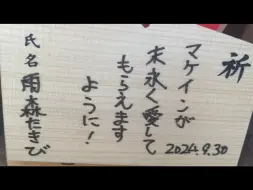 祈
マケインが
末永く愛して
もらえます
ように!
2024.9.30
氏名 雨森たきび